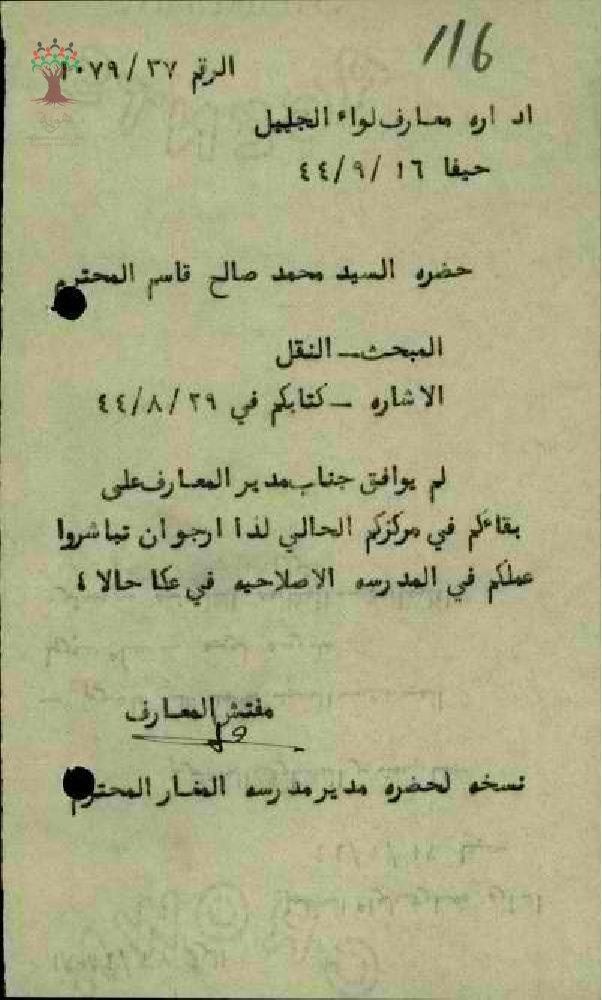 116
الرقم ١٠٧٩/٣٧
اداره معارف لواء الجليل
حيفا ١٦ /٤٤/٩
حضره السيد محمد صالح قاسم المحترم
المبحث ـ النقل
الاشاره ـ كتابكم في ٤٤/٨/٢٩
لم يوافق جناب مدير المعارف على
بقاءكم في مركزكم الحالي لذا ارجو ان تباشروا
عملكم في المدرسه الاصلاحيه في عكا حالا ؛
مفتش المعارف
نسخه لحضره مدير مدرسه المغار المحترم
هوية